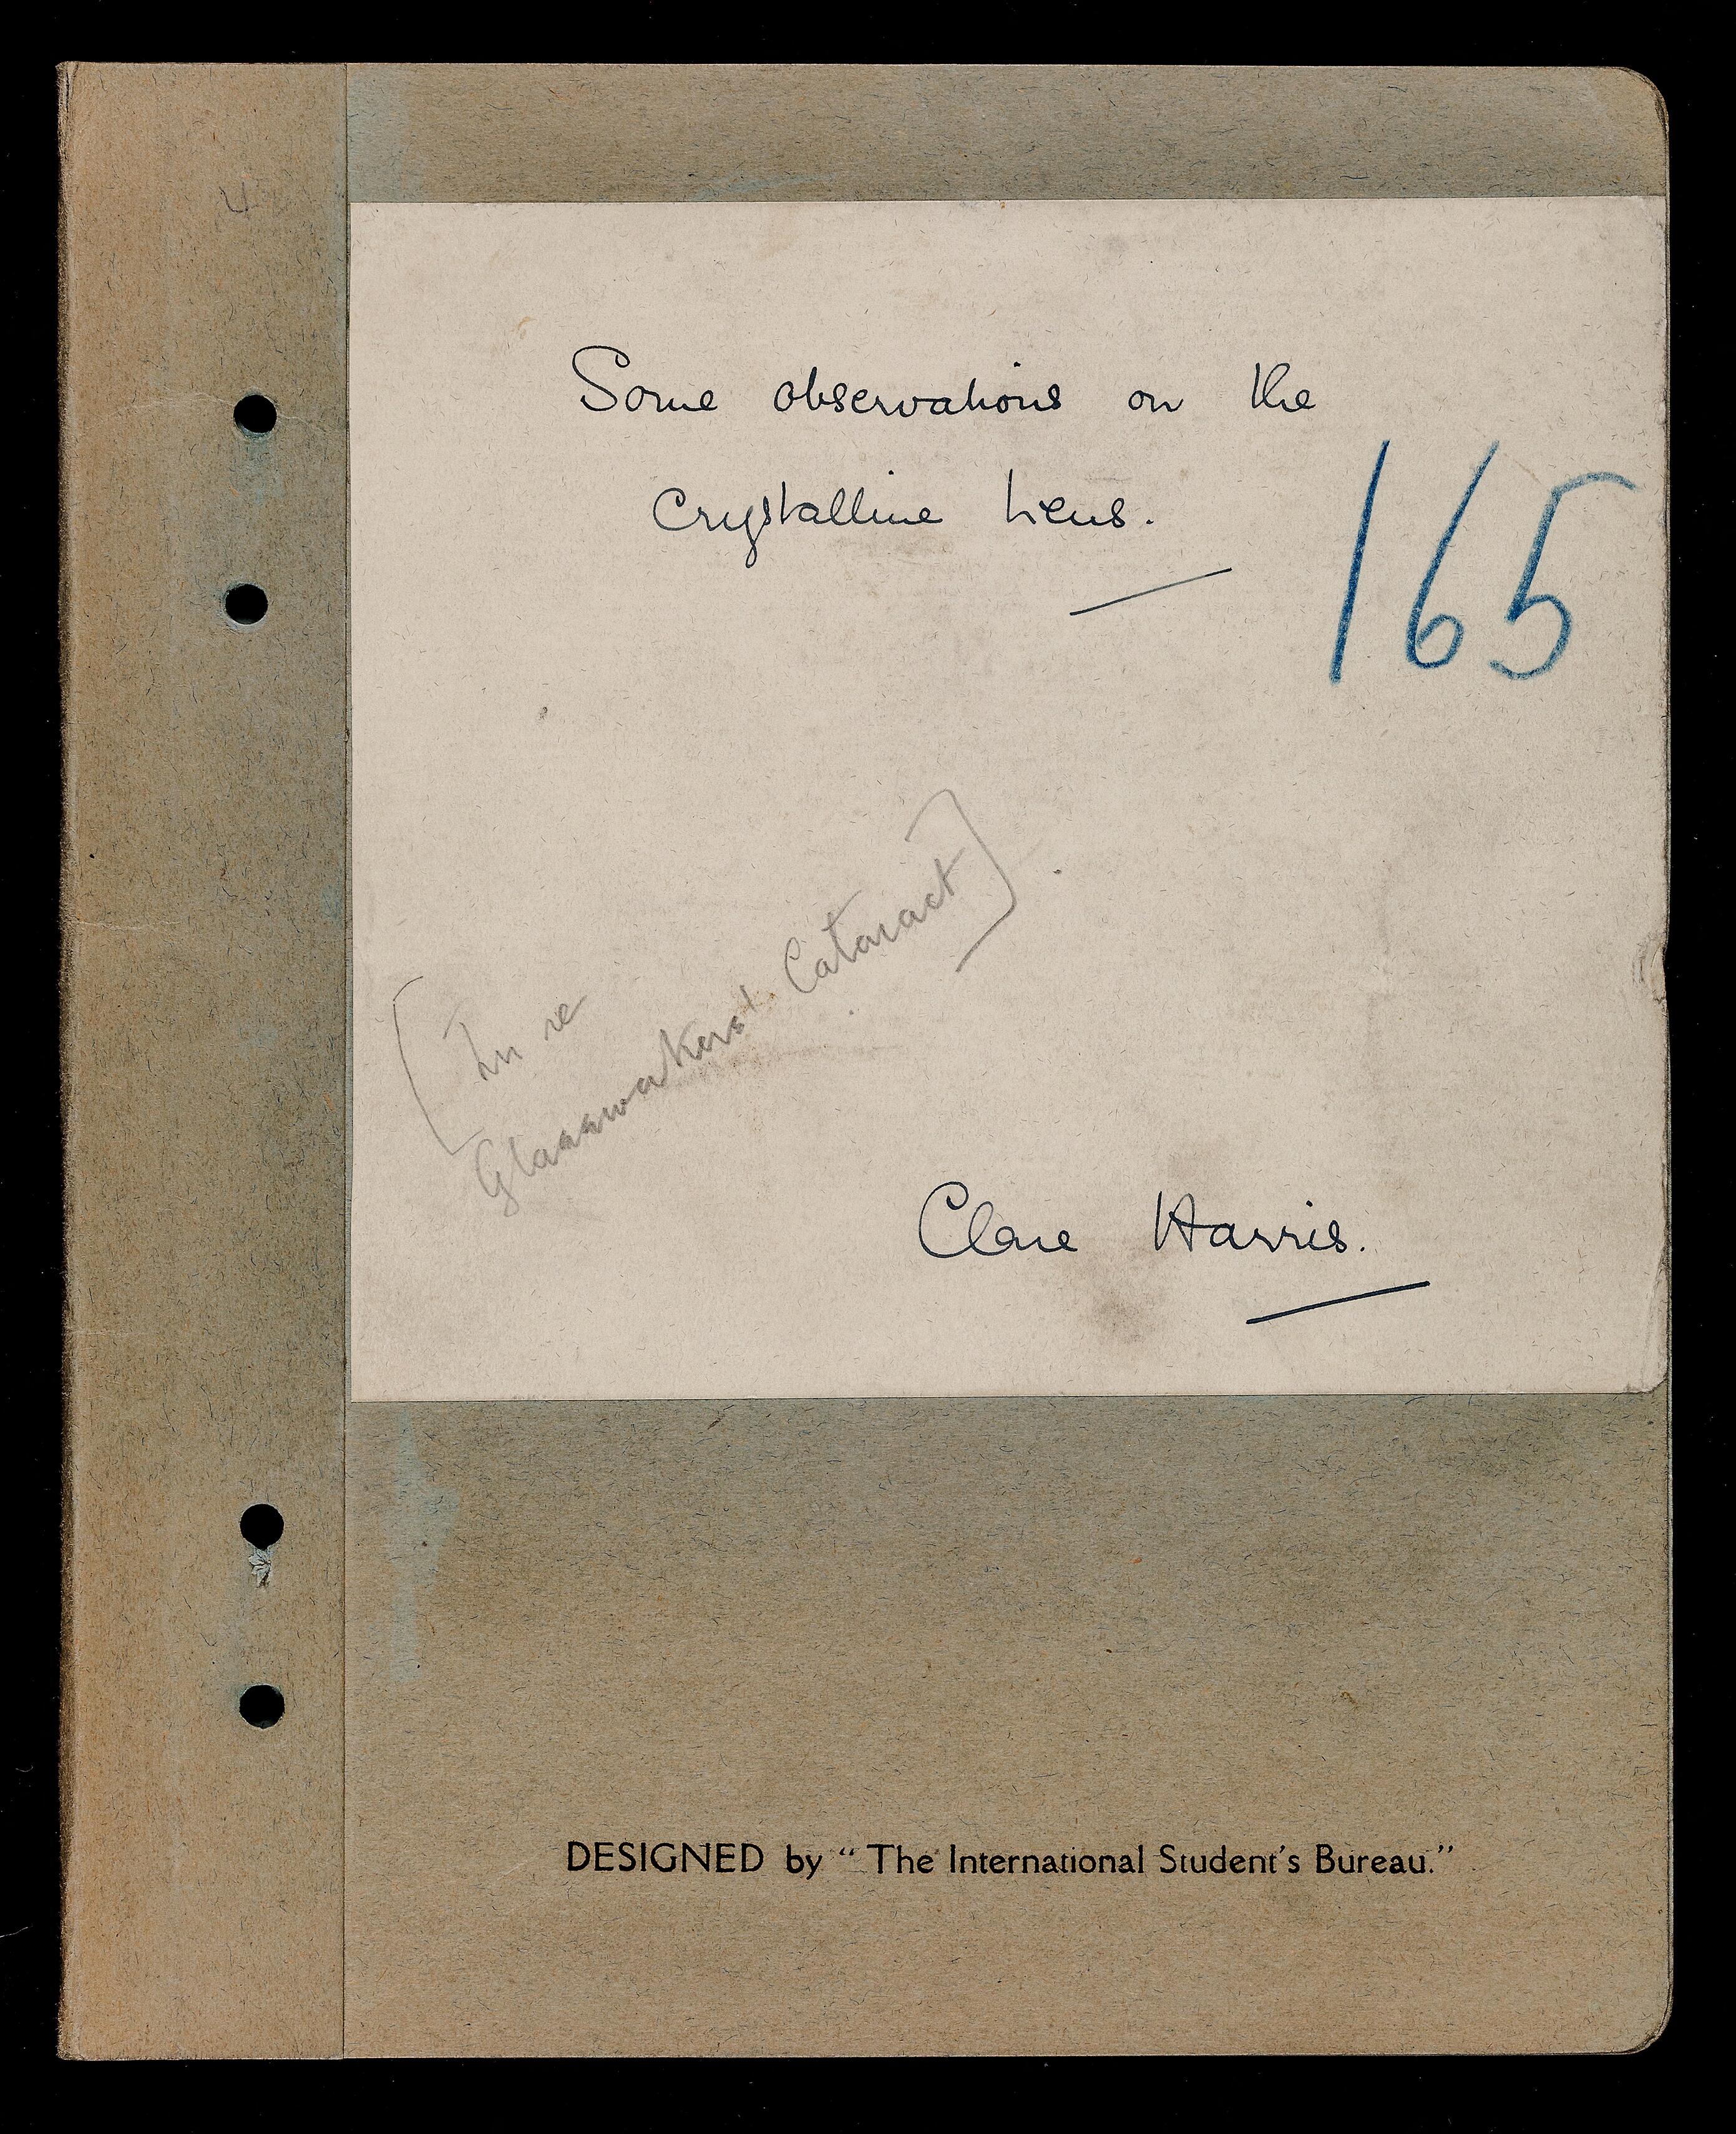 Some observations on the
Crystalline Lens.
165
[In re
Glassworkers' Cataract].
Clare Harris.
DESIGNED by “The International Student's Bureau.”